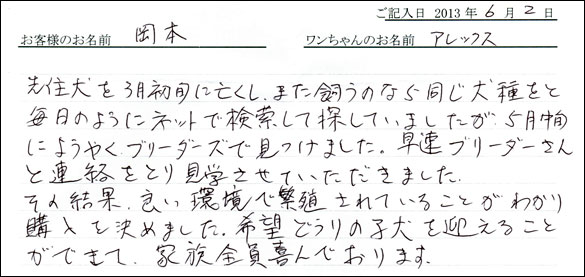 ご記入日 2013年6月2日
お客様のお名前 岡本 ワンちゃんのお名前 アレックス
先住犬を3月初旬に亡くし、また飼うのなら同じ犬種をと
毎日のようにネットで検索して探していましたが、5月中旬
にようやくブリーダーズで見つけました。早速ブリーダーさん
と連絡をとり見学させていただきました。
その結果、良い環境で繁殖されていることがわかり
購入を決めました。希望どうりの子犬を迎えること
ができて、家族全員喜んでおります。